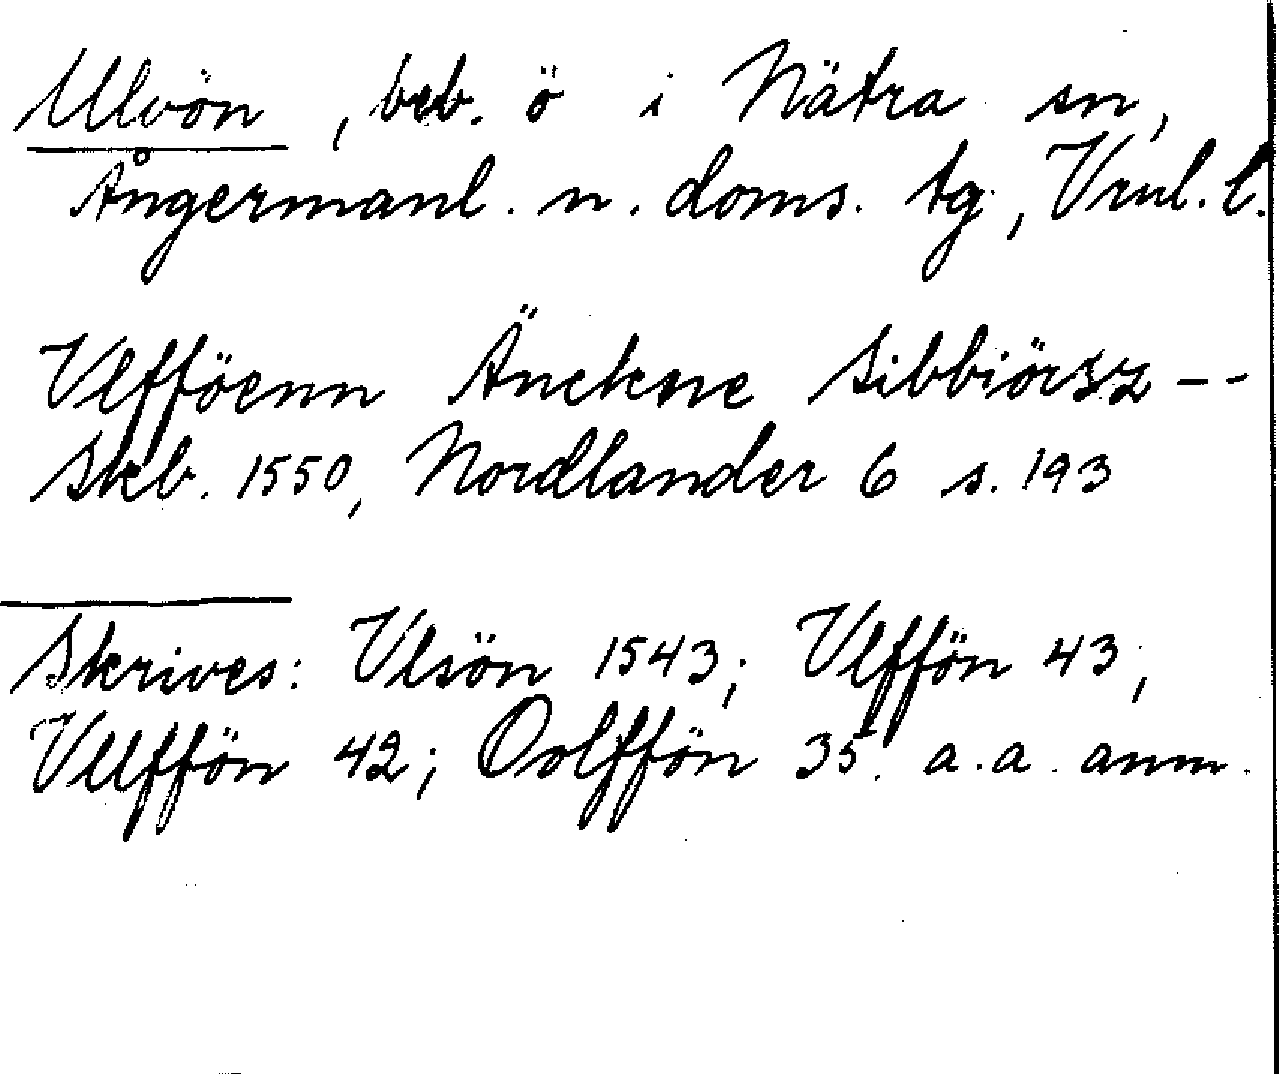 Ulvön, beb. ö i Nätra sn,
Ångermanl. n. doms. tg., Vrnl. l.
Vlfföenn Änckne Sibbiörsz --
Skb. 1550, Nordlander 6 s. 193
Skrives: Vlsön 1543; Vlffön 43,
Vllffön 42; Oolffön 35. a. a. anm.